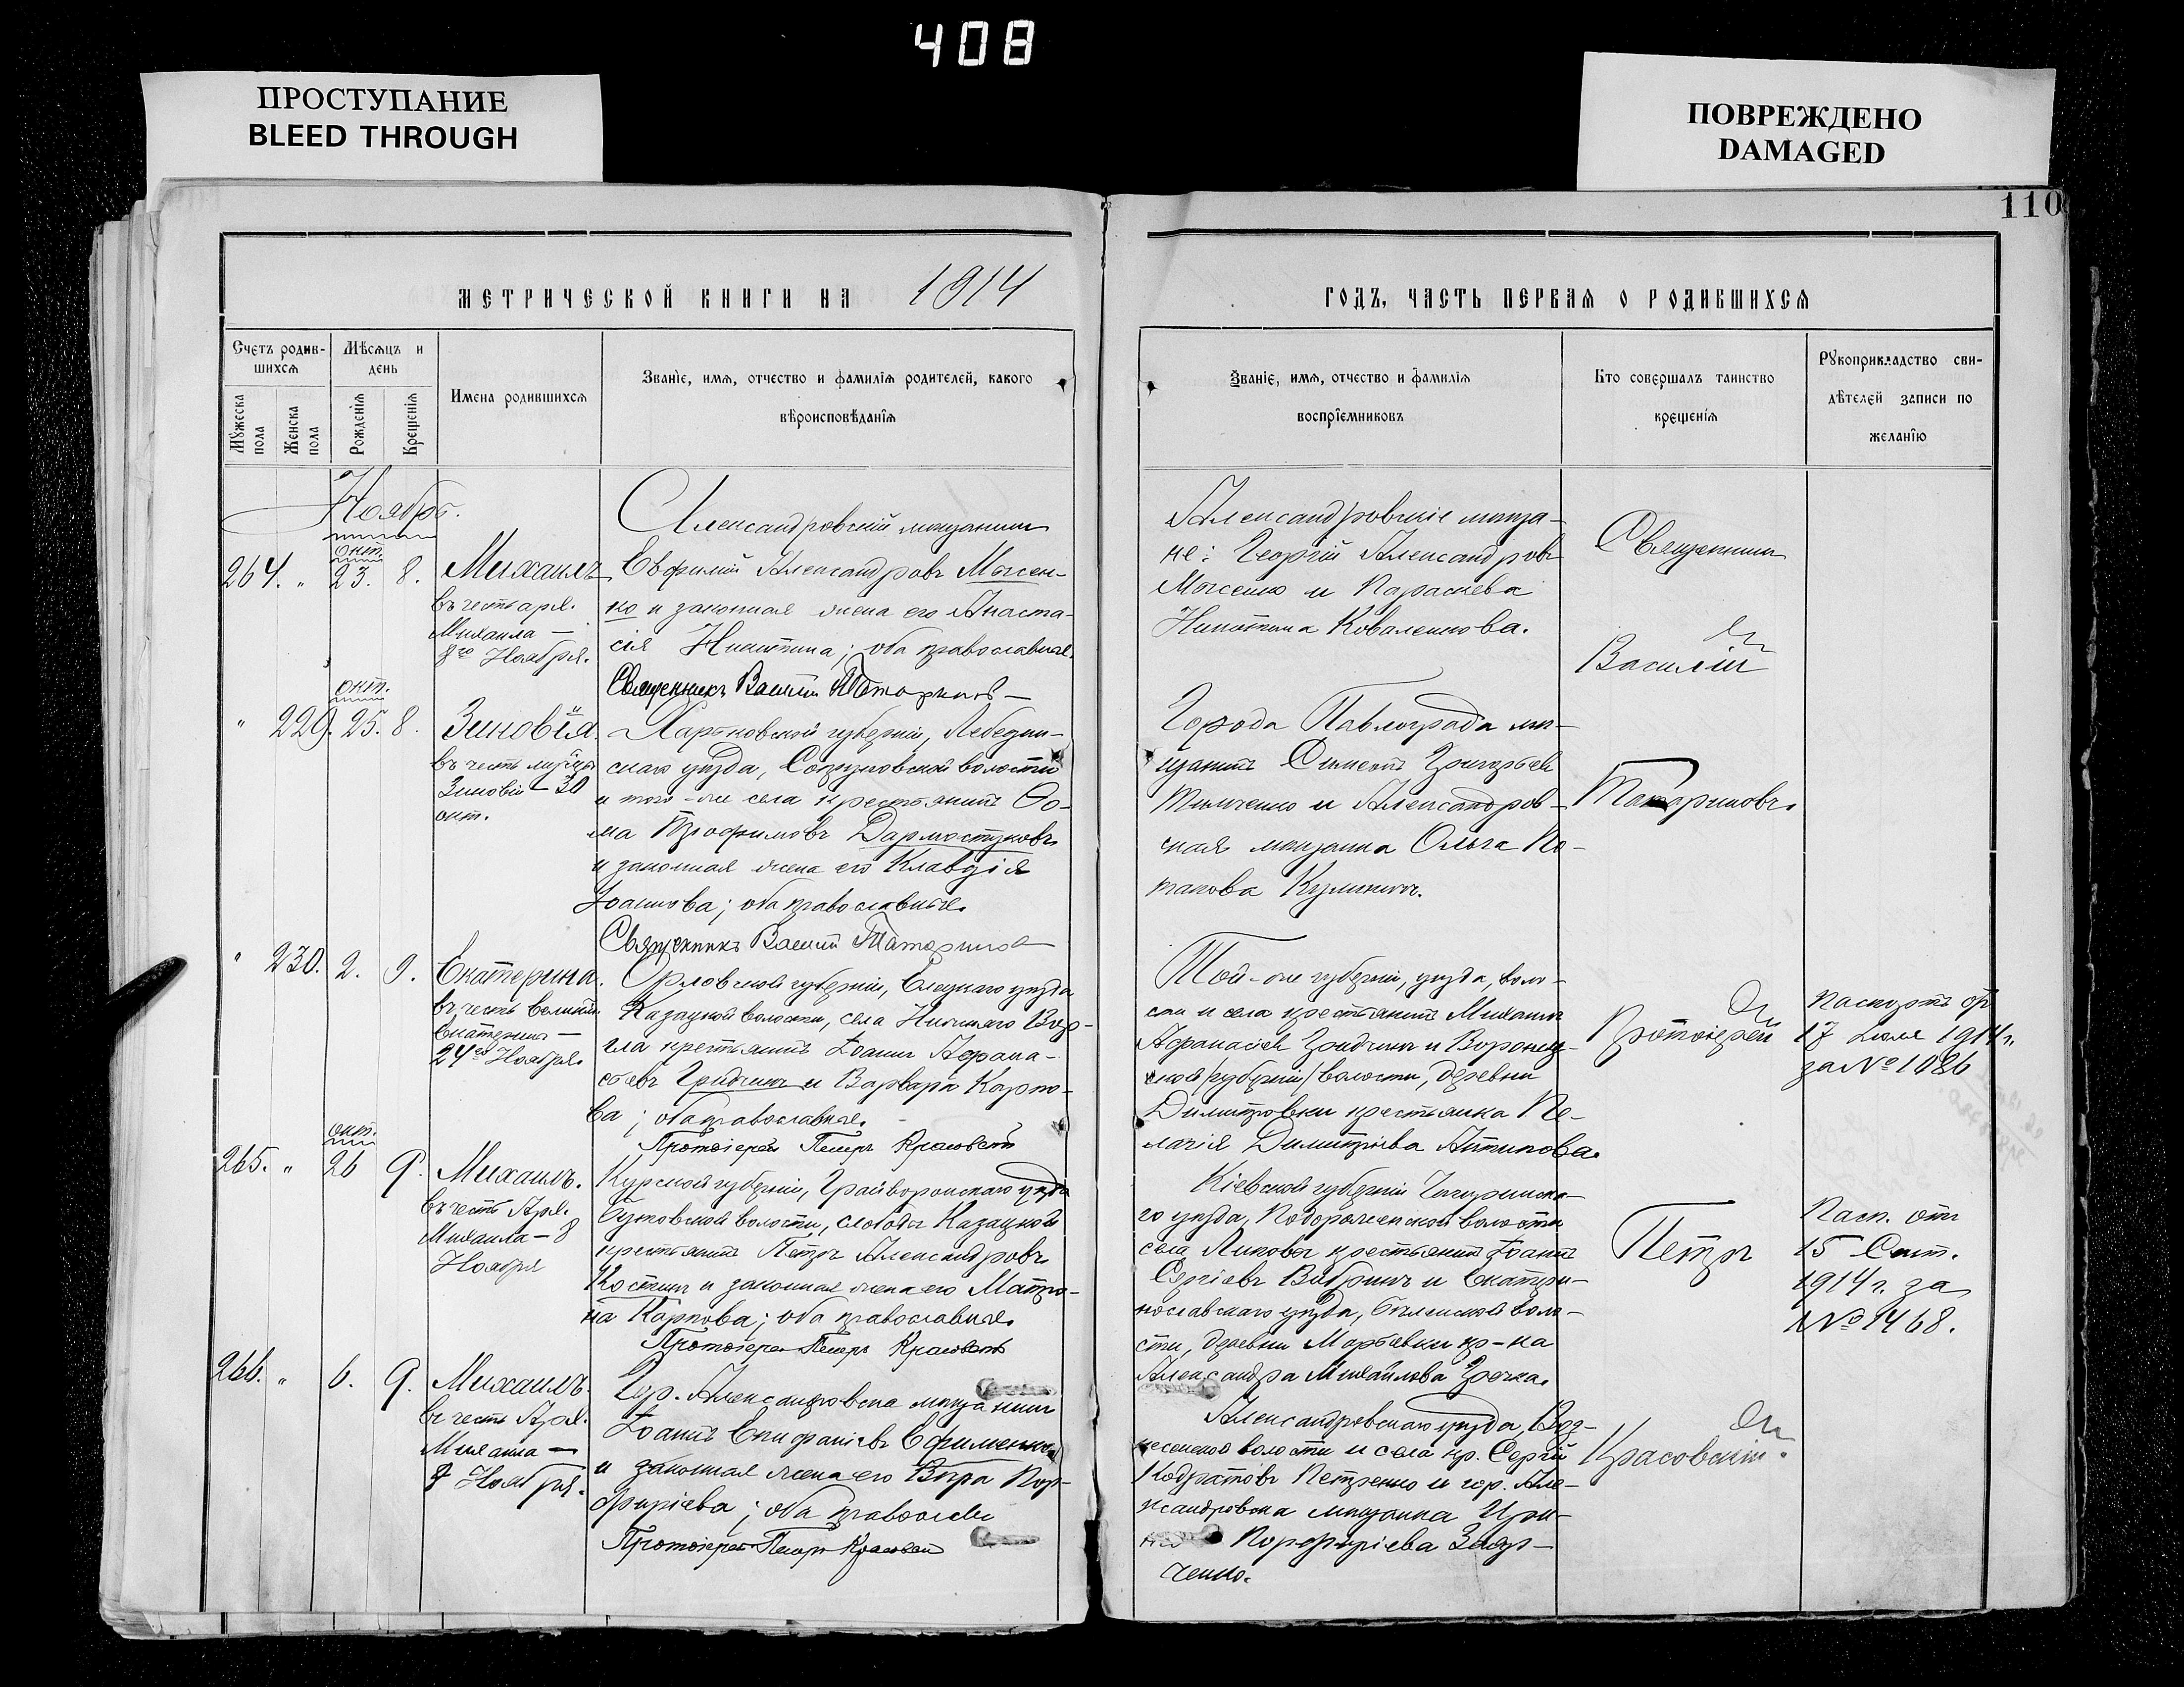 408
ПРОСТУПАНИЕ
BLEED THROUGH
ПОВРЕЖДЕНО
DAMAGED
110
МЕТРИЧЕСКОЙ КНИГИ НА 1914
ГОДЪ, ЧАСТЬ ПЕРВАЯ О РОДИВШИХСЯ
Счетъ родив-
шихся
Мѣсяцъ и
день
Мужеска
пола
Женска
пола
Рожденія
Крещенія
Имена родившихся
Званіе, имя, отчество и фамилія родителей, какого
вѣроисповѣданія
Званіе, имя, отчество и фамилія
воспріемниковъ
Кто совершалъ таинство
крещенія
Рукоприкладство сви-
дѣтелей записи по
желанію
Ноябрь.
264. " окт. 23. 8.
Михаилъ
въ честь арх.
Михаила —
8го Ноября.
Александровскій мѣщанинъ
Евфимій Александровъ Мысен-
ко и законная жена его Анаста-
сія Никитина; оба православные.
Священникъ Василій Татариновъ —
Александровскіе мѣща-
не: Георгій Александровъ
Мысенко и Параскева
Никитина Коваленкова.
Священникъ
Василій
Татариновъ.
" 229. окт. 25. 8.
Зиновія.
въ честь муч.
Зиновіи — 30
окт.
Харьковской губерніи, Лебедин-
скаго уѣзда, волости
и того-же села крестьянинъ Ѳо-
ма Трофимовъ Дармостуковъ
и законная жена его Клавдія
Іоаннова; оба православные.
Священникъ Василій Татариновъ
Города Павлограда мѣ-
щанинъ Симеонъ Григорьевъ
Тимченко и Александров-
ская мѣщанка Ольга По-
тапова Кулиничъ.
" 230. 2. 9.
Екатерина.
въ честь великом.
Екатерины —
24го Ноября.
Орловской губерніи, Елецкаго уѣзда
Казацкой волости, села Нижняго Вор-
гла крестьянинъ Іоаннъ Афана-
сьевъ Гридчинъ и Варвара Карпо-
ва; оба православные.
Протоіерей Петръ Красовскій
Той-же губерніи, уѣзда, воло-
сти и села крестьянинъ Михаилъ
Афанасіевъ Гридчинъ и Воронеж-
ской /губерніи/ волости, деревни
Димитровки крестьянка Пе-
лагія Димитріева Антипова.
Протоіерей
Петръ
Красовскій.
Паспортъ от
17 Іюля 1914 г.
за № 1086
265. " окт. 26 9.
Михаилъ.
въ честь Арх.
Михаила — 8
Ноября
Курской губерніи, Грайворонскаго уѣзда
волости, слободы Казацкой
крестьянинъ Петръ Александровъ
Костинъ и законная жена его Матро-
на Карпова; оба православные.
Протоіерей Петръ Красовскій
Кіевской губерніи Чигиринска-
го уѣзда, Подорожненской волости
села крестьянинъ Іоаннъ
Сергіевъ и Екатери-
нославскаго уѣзда, Бѣленской воло-
сти, деревни Марьевки кр-ка
Александра Михайлова Гречка.
Пасп. отъ
15 Сент.
1914 г. за
№ 1468.
266. " 6. 9.
Михаилъ.
въ честь Арх.
Михаила —
8 Ноября.
Гор. Александровска мѣщанинъ
Іоаннъ Епифаніевъ Ефименко
и законная жена его Вѣра Пор-
фиріева; оба православ
Протоіерей Петръ Красовскій
Александровскаго уѣзда, Воз-
несенской волости и села кр. Сергій
Кодратовъ Петренко и гор. Але-
ксандровска мѣщанка Ири-
на Порфиріева
ченко.